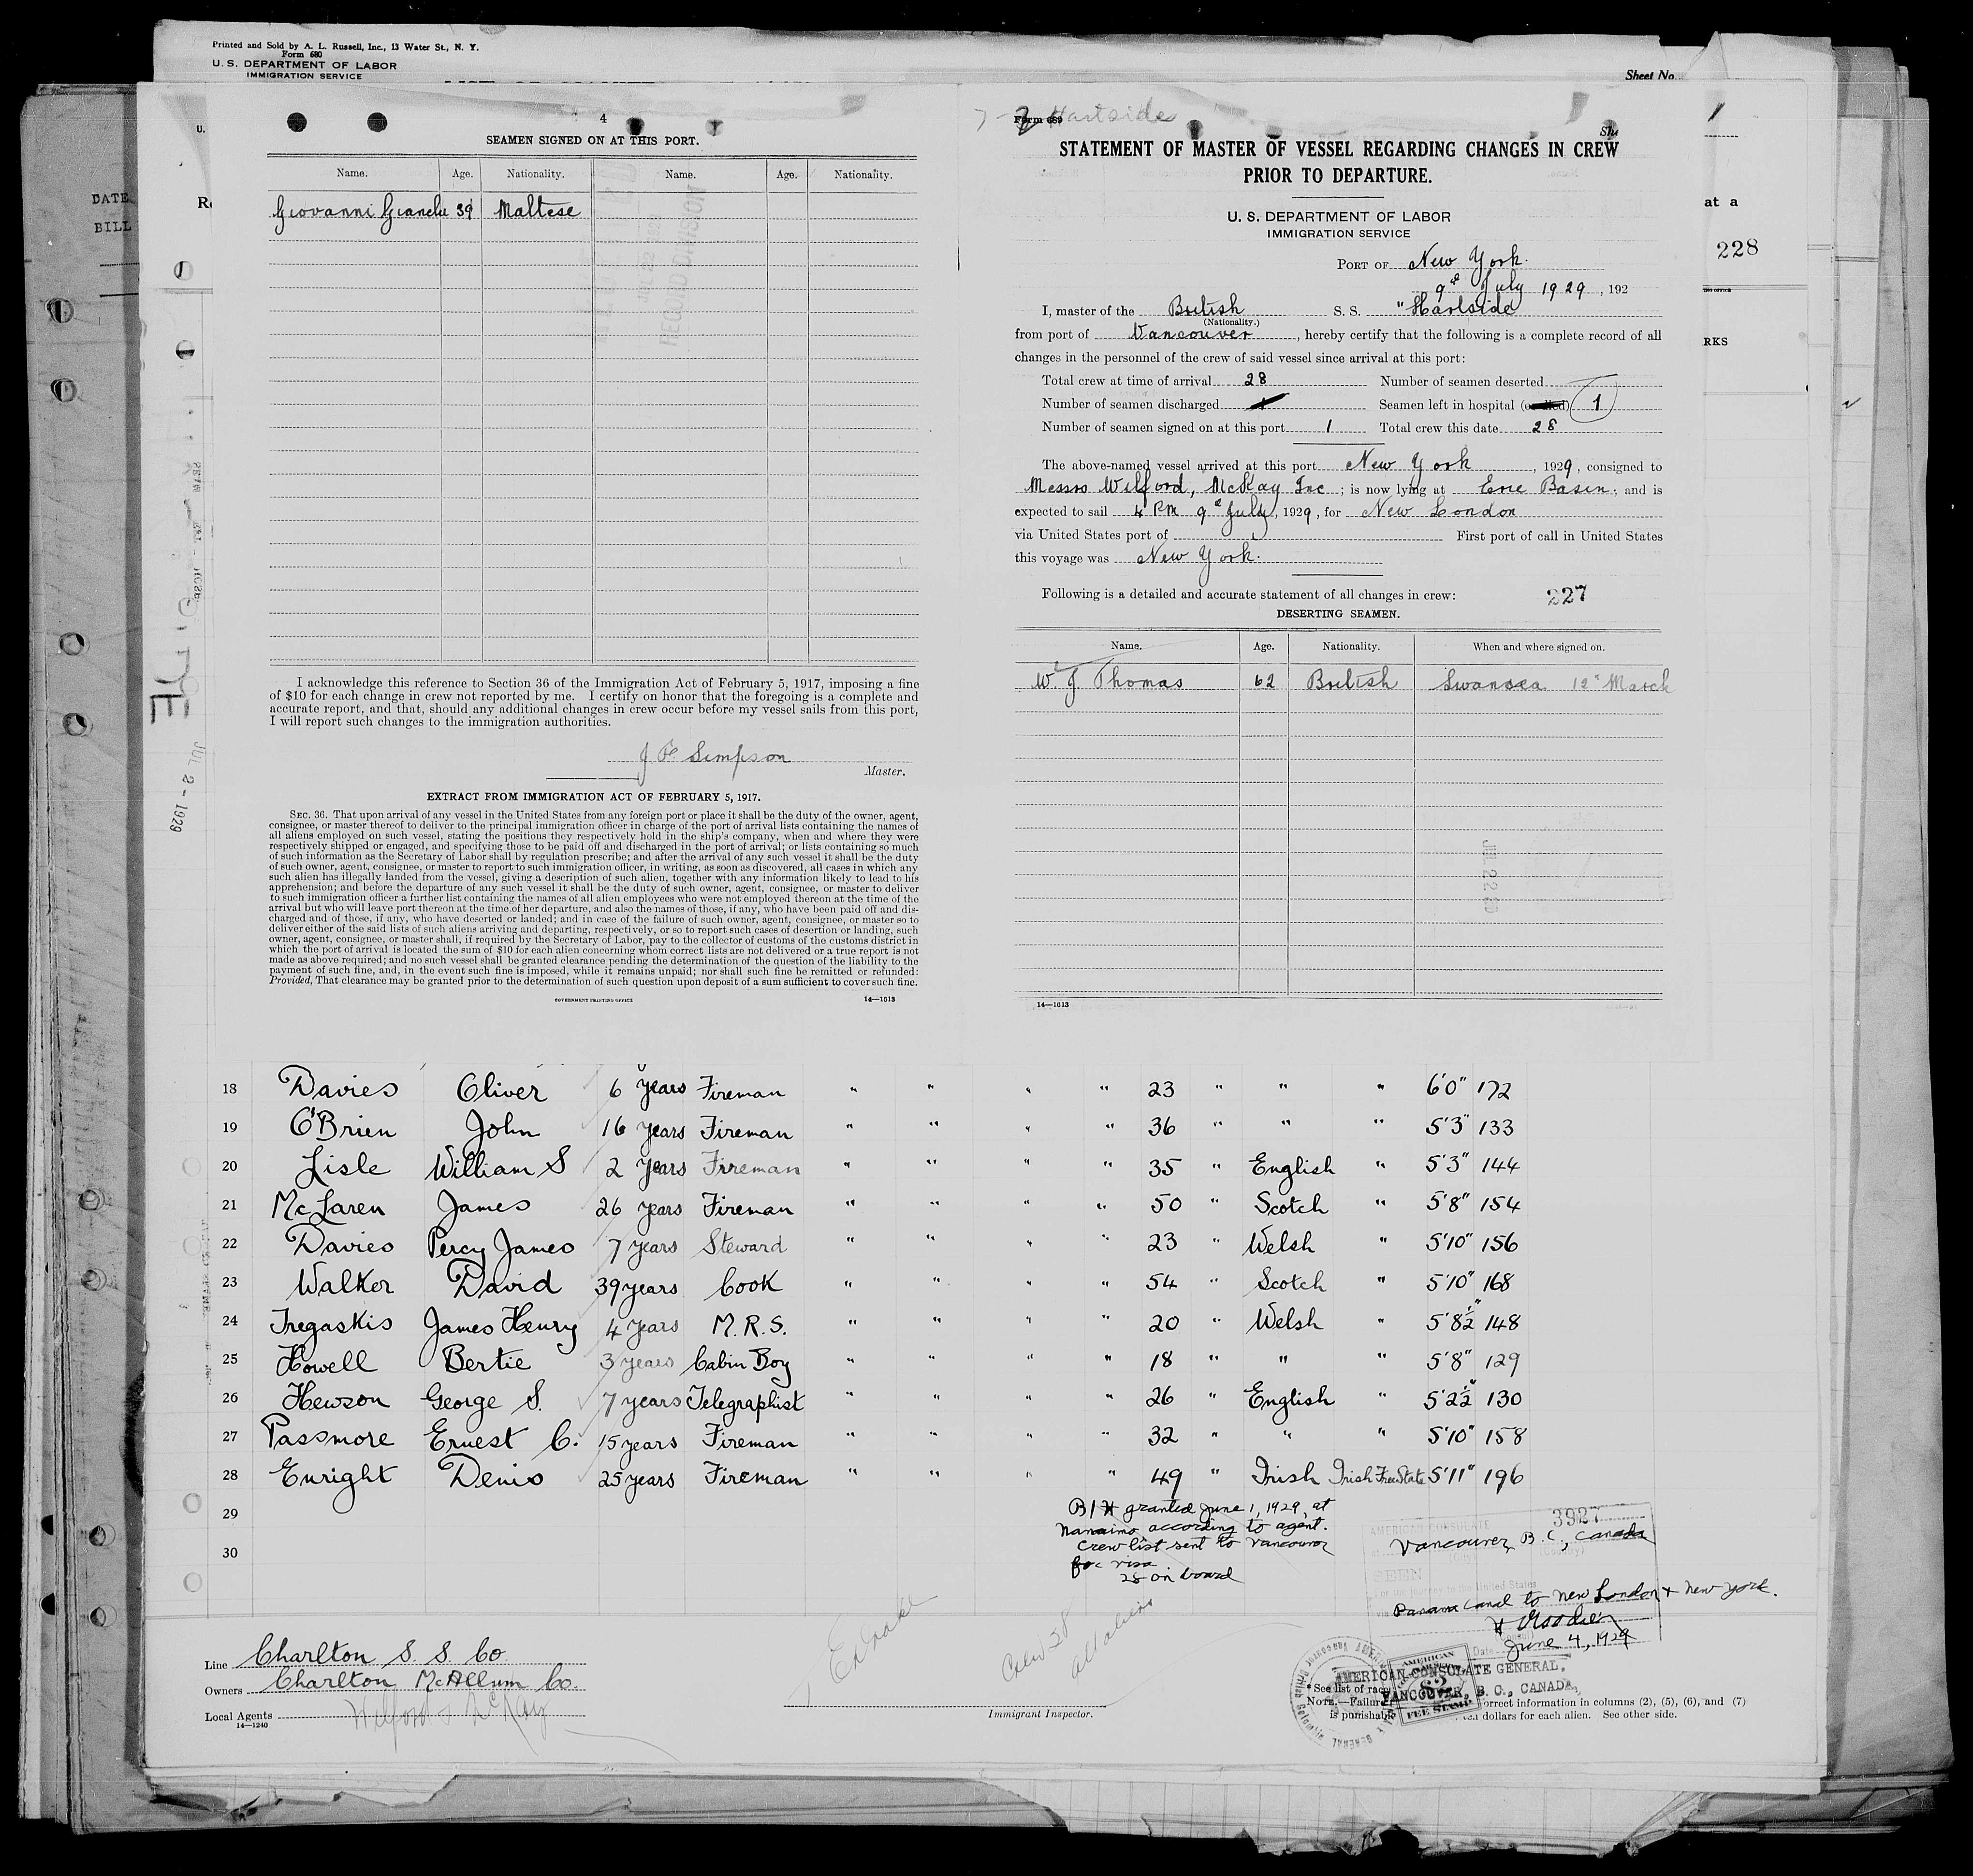 Printed and Sold by A. L. Russell, Inc., 13 Water St., N. Y.
Form 680
U. S. DEPARTMENT OF LABOR
IMMIGRATION SERVICE
Sheet No.
DATE
BILL
4
SEAMEN SIGNED ON AT THIS PORT.
Name. Age. Nationality. Name. Age. Nationality.
Giovanni 39 Maltese
RECORD DIVISION
I acknowledge this reference to Section 36 of the Immigration Act of February 5, 1917, imposing a fine
of $10 for each change in crew not reported by me. I certify on honor that the foregoing is a complete and
accurate report, and that, should any additional changes in crew occur before my vessel sails from this port,
I will report such changes to the immigration authorities.
Simpson
Master.
EXTRACT FROM IMMIGRATION ACT OF FEBRUARY 5, 1917.
SEC. 36. That upon arrival of any vessel in the United States from any foreign port or place it shall be the duty of the owner, agent,
consignee, or master thereof to deliver to the principal immigration officer in charge of the port of arrival lists containing the names of
all aliens employed on such vessel, stating the positions they respectively hold in the ship's company, when and where they were
respectively shipped or engaged, and specifying those to be paid off and discharged in the port of arrival; or lists containing so much
of such information as the Secretary of Labor shall by regulation prescribe; and after the arrival of any such vessel it shall be the duty
of such owner, agent, consignee, or master to report to such immigration officer, in writing, as soon as discovered, all cases in which any
such alien has illegally landed from the vessel, giving a description of such alien, together with any information likely to lead to his
apprehension; and before the departure of any such vessel it shall be the duty of such owner, agent, consignee, or master to deliver
to such immigration officer a further list containing the names of all alien employees who were not employed thereon at the time of the
arrival but who will leave port thereon at the time of her departure, and also the names of those, if any, who have been paid off and dis-
charged and of those, if any, who have deserted or landed; and in case of the failure of such owner, agent, consignee, or master so to
deliver either of the said lists of such aliens arriving and departing, respectively, or so to report such cases of desertion or landing, such
owner, agent, consignee, or master shall, if required by the Secretary of Labor, pay to the collector of customs of the customs district in
which the port of arrival is located the sum of $10 for each alien concerning whom correct lists are not delivered or a true report is not
made as above required; and no such vessel shall be granted clearance pending the determination of the question of the liability to the
payment of such fine, and, in the event such fine is imposed, while it remains unpaid; nor shall such fine be remitted or refunded:
Provided, That clearance may be granted prior to the determination of such question upon deposit of a sum sufficient to cover such fine.
GOVERNMENT PRINTING OFFICE 14—1613
JUL 2 - 1929
Hartside
Form 689
STATEMENT OF MASTER OF VESSEL REGARDING CHANGES IN CREW
PRIOR TO DEPARTURE.
U. S. DEPARTMENT OF LABOR
IMMIGRATION SERVICE
PORT OF New York.
9th July 1929, 192
I, master of the British S. S. "Hartside
(Nationality.)
from port of Vancouver, hereby certify that the following is a complete record of all
changes in the personnel of the crew of said vessel since arrival at this port:
Total crew at time of arrival 28 Number of seamen deserted
Number of seamen discharged Seamen left in hospital 1
Number of seamen signed on at this port 1 Total crew this date 28
The above-named vessel arrived at this port New York, 1929, consigned to
Messrs Wilford, McKay Inc; is now lying at Erie Basin; and is
expected to sail 4 PM 9th July, 1929, for New London
via United States port of First port of call in United States
this voyage was New York.
Following is a detailed and accurate statement of all changes in crew: 227
DESERTING SEAMEN.
Name. Age. Nationality. When and where signed on.
W. J. Thomas 62 British Swansea 12th March
14—1613
1
at a
228
RKS
18 Davies Oliver 6 years Fireman " " " " 23 " " " 6'0" 172
19 O'Brien John 16 years Fireman " " " " 36 " " " 5'3" 133
20 Lisle William S 2 years Fireman " " " " 35 " English " 5'3" 144
21 McLaren James 26 years Fireman " " " " 50 " Scotch " 5'8" 154
22 Davies Percy James 7 years Steward " " " " 23 " Welsh " 5'10" 156
23 Walker David 39 years Cook " " " " 54 " Scotch " 5'10" 168
24 Tregaskis James Henry 4 years M.R.S. " " " " 20 " Welsh " 5'8½" 148
25 Howell Bertie 3 years Cabin Boy " " " " 18 " " " 5'8" 129
26 Hewson George S. 7 years Telegraphist " " " " 26 " English " 5'2½" 130
27 Passmore Ernest C. 15 years Fireman " " " " 32 " " " 5'10" 158
28 Enright Denis 25 years Fireman " " " " 49 " Irish Irish Free State 5'11" 196
29
30
B/H granted June 1, 1929, at
Nanaimo according to agent.
Crew list sent to Vancouver
for visa
28 on board
3927
AMERICAN CONSULATE
Vancouver, B. C., Canada
SEEN
Panama Canal to New London + New York.
June 4, 1929
AMERICAN CONSULATE GENERAL,
VANCOUVER, B. C., CANADA.
AMERICAN
$2
FEE STAMP
Crew 28
all aliens
Line Charlton S. S. Co.
Owners Charlton McAllum Co.
Local Agents Wilford & McKay
14—1240
Immigrant Inspector.
* See list of rac
NOTE.—Failure orrect information in columns (2), (5), (6), and (7)
is punishable ten dollars for each alien. See other side.